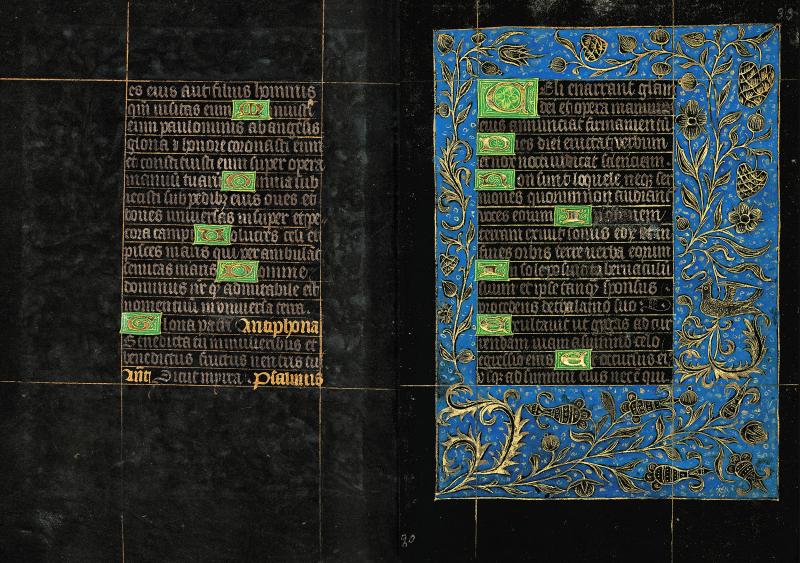 es eius aut filius hominis
qm̄ uisitas eum Minuisti
eum paulominus ab angelis
gloria ⁊ honore coronasti eum
et constituisti eum super opera
manuū tuarū Omnia sub
iecisti sub pedibꝫ eius oues et
boues uniuersas insuper et pe
cora campi Volucres celi et
pisces maris qui perambulāt
semitas maris Domine
dominus nr̄ qͣ admirabile est
nomen tuū in uniuersa terra
Gloria patri Antiphona
Benedicta tu in mulieribus et
benedictus fructus uentris tui
Antͥ Sicut mirra Psalmus
Celi enarrant gl̄am
dei et opera manuū
annunciat firmamentū
Dies diei eructat verbum
et nox nocti indicat scienciam
Non sunt loquele neqꝫ ser
mones quorum non audiant
voces eorum In omnem
terram exiuit sonus eoꝝ et in
fines orbis terre verba eorum
In sole posuit tabernaculū
suum et ipse tanqͣ sponsus
procedens de thalamo suo
Exultauit ut gigas ad cur
rendam uiam a summo celo
egressio eius Et occursus ei
usqꝫ ad summū eius nec ē qui
90